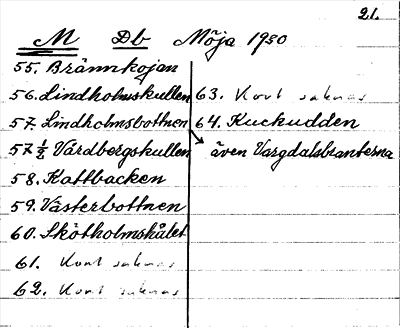 21.
M Db Möja 1980
55. Brännkojan
56. Lindholmskullen
57. Lindholmsbottnen
57 ½ Vårdbergskullen
58. Kattbacken
59. Västerbottnen
60. Skötholmshålet
61. Kort saknas
62. Kort saknas
63. Kort saknas
64. Kuckudden
även Vargdalsbranterna